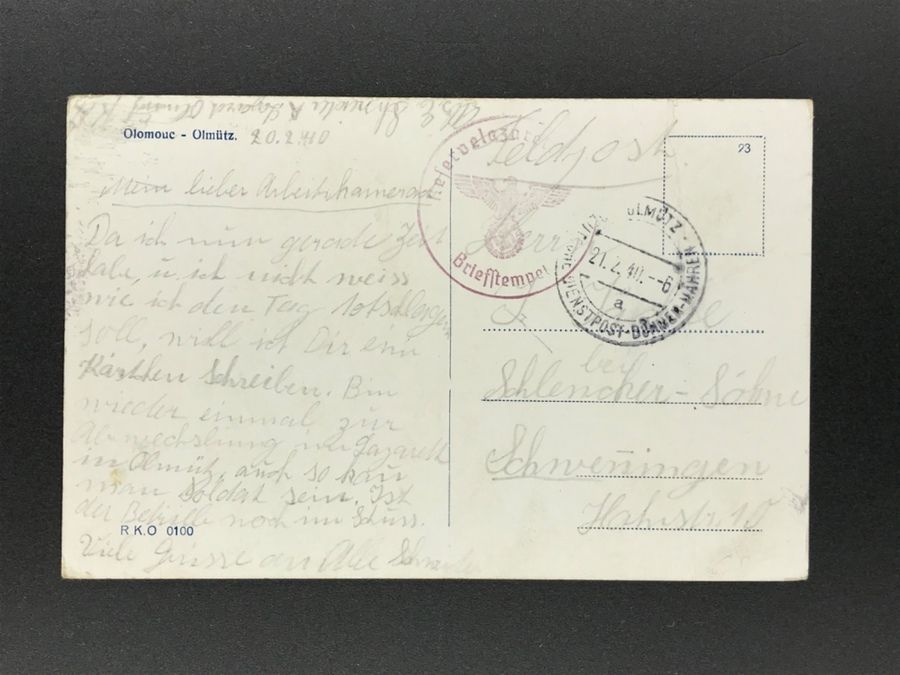 Olomouc - Olmütz. 20.2.40
Mein lieber Arbeitskamerad
Da ich nun gerade Zeit
habe, u. ich nicht weiss
wie ich den Tag totschlagen
soll, will ich Dir ein
Kärtchen Schreiben. Bin
wieder einmal zur
Abwechslung im Lazarett
in Olmütz, auch so kann
man Soldat sein. Ist
der noch im Schuss.
R K.O 0100
Viele Grüsse an Alle
Reservelazarett
Briefstempel
Feldpost
23
OLMÜTZ
21.2.40.-6
a
DIENSTPOST BÖHMEN-MÄHREN
Herr
bei
Schlencker-Söhne
Schwenningen